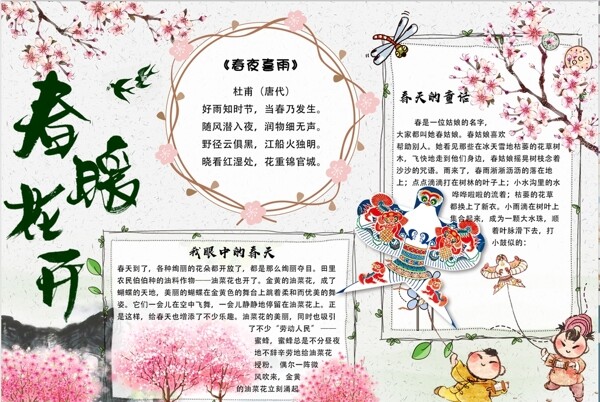 春暖花开
《春夜喜雨》
杜甫（唐代）
好雨知时节，当春乃发生。
随风潜入夜，润物细无声。
野径云俱黑，江船火独明。
晓看红湿处，花重锦官城。
春天的童话
春是一位姑娘的名字，
大家都叫她春姑娘。春姑娘喜欢
帮助别人。她看见那些在冰天雪地枯萎的花草树
木，飞快地走到他们身边，春姑娘摇晃树枝念着
沙沙的咒语。雨来了，春雨淅淅沥沥的落在地
上；点点滴滴打在树林的叶子上；小水沟里的水
哗哗啦啦的流着；枯萎的花草
都换上了新衣。小雨滴在树叶上
集合起来，成为一颗大水珠，顺
着叶脉滑下去，打
小鼓似的：
我眼中的春天
春天到了，各种绚丽的花朵都开放了，都是那么绚丽夺目。田里
农民伯伯种的油料作物——油菜花也开了。金黄的油菜花，成了
蝴蝶的天地，美丽的蝴蝶在金黄色的舞台上跳着柔和而优美的舞
姿。它们一会儿在空中飞舞，一会儿静静地停留在油菜花上。正
是这样，给春天也增添了不少乐趣。油菜花的美丽，同时也吸引
了不少“劳动人民”——
蜜蜂，蜜蜂总是不分昼夜
地不辞辛劳地给油菜花
授粉，偶尔一阵微
风吹来，金黄
的油菜花立刻涌起